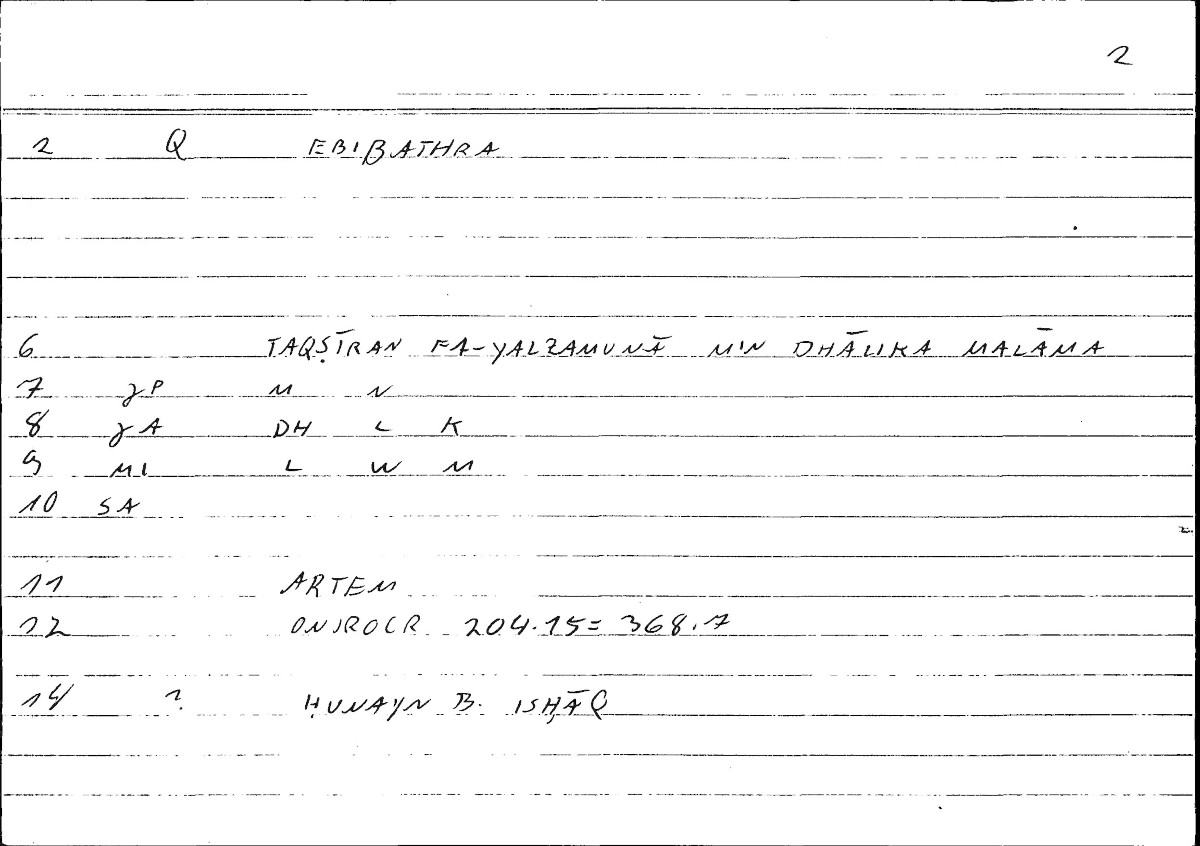 2
2 Q EBIBATHRA
6 TAQṢĪRAN FA-YALZAMUNĀ MIN DHĀLIKA MALĀMA
7 γP M N
8 γA DH L K
9 MI L W M
10 SA
11 ARTEM
12 ONIROCR 204.15=368.7
14 ? ḤUNAYN B. ISḤĀQ